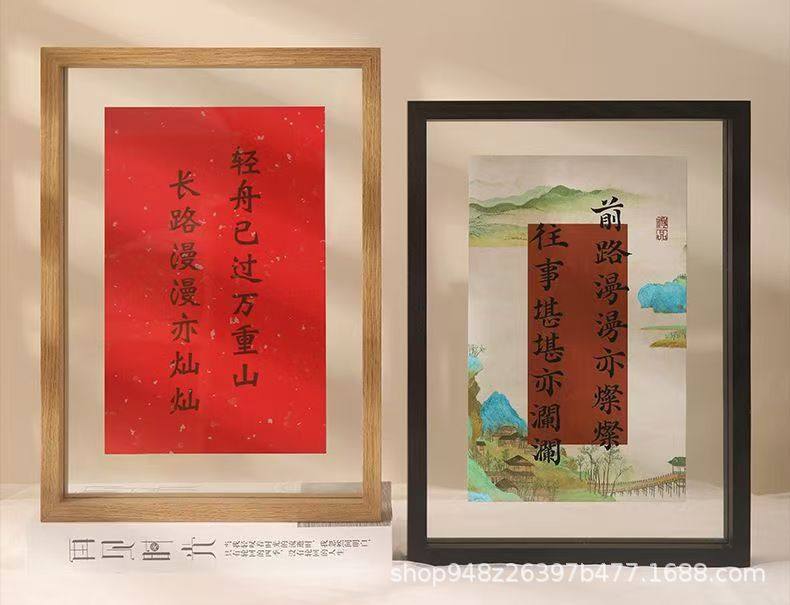 轻舟已过万重山
长路漫漫亦灿灿
前路漫漫亦燦燦
往事堪堪亦瀾瀾
再见时光
shop948z26397b477.1688.com